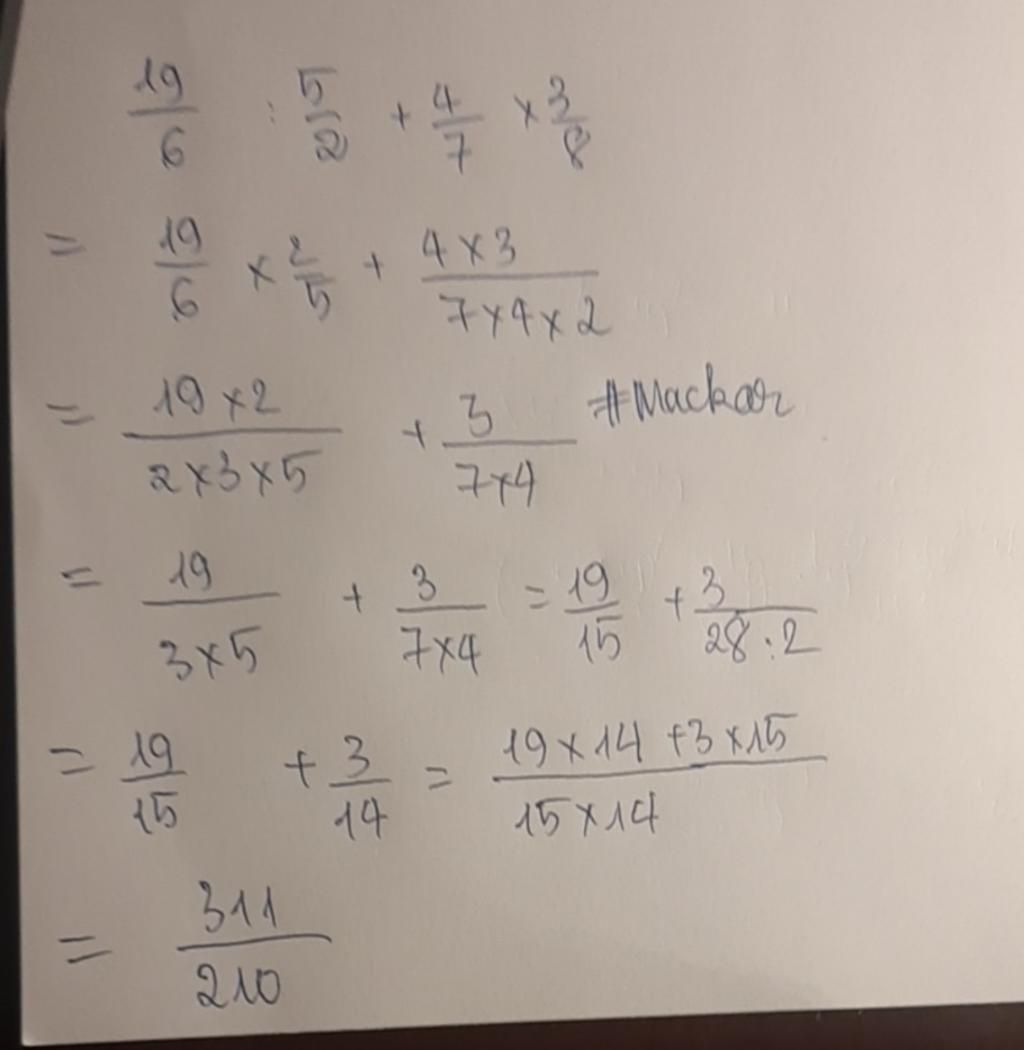 19/6 : 5/2 + 4/7 × 3/8
= 19/6 × 2/5 + (4×3)/(7×4×2)
= (19×2)/(2×3×5) + 3/(7×4) #Mackar
= 19/(3×5) + 3/(7×4) = 19/15 + 3/(28:2)
= 19/15 + 3/14 = (19×14+3×15)/(15×14)
= 311/210